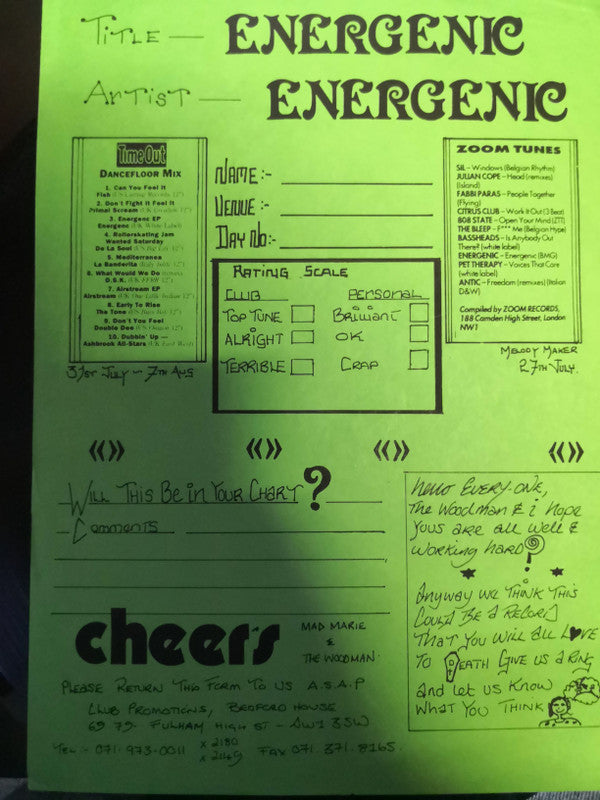 Title — ENERGENIC
Artist — ENERGENIC
Time Out
DANCEFLOOR MIX
1. Can You Feel It
Fish (US Cutting Records 12")
2. Don't Fight It Feel It
Primal Scream (UK Creation 12")
3. Energenc EP
Energenc (UK White Label)
4. Rollerskating Jam
Wanted Saturday
De La Soul (US Big Life 12")
5. Mediterranea
La Banderita (Italy 12")
6. What Would We Do
D.S.K. (UK FFRR 12")
7. Airstream EP
Airstream (UK One Little Indian 12")
8. Early To Rise
The Tone (12")
9. Don't You Feel
Double Dee (12")
10. Dubbin' Up —
Ashbrook All-Stars (UK East West)
31st July – 7th Aug
Name:-
Venue:-
Day No:-
Rating Scale
Club Personal
Top Tune Brilliant
Alright OK
Terrible Crap
ZOOM TUNES
SIL – Windows (Belgian Rhythm)
JULIAN COPE – Head (remixes)
(Island)
FABBI PARAS – People Together
(Flying)
CITRUS CLUB – Work It Out (3 Beat)
808 STATE – Open Your Mind (ZTT)
THE BLEEP – F*** Me (Belgian Hype)
BASSHEADS – Is Anybody Out
There? (white label)
ENERGENIC – Energenic (BMG)
PET THERAPY – Voices That Care
(white label)
ANTIC – Freedom (remixes) (Italian
D&W)
Compiled by ZOOM RECORDS,
188 Camden High Street, London
NW1
Melody Maker
27th July.
Will This Be in Your Chart?
Comments
Hello Every-one,
The Woodman & i hope
yous are all well &
working hard!
Anyway we think this
could be a record
That you will all love
To Death Give us a ring
and let us know
what you think
cheers
Mad Marie
&
The Woodman.
Please Return This Form To Us A.S.A.P
Club Promotions, Bedford House
69 79 Fulham High St – SW1 3SW
Tel:- 071-973-0011 x 2180
x 2149
Fax 071.371.8165.